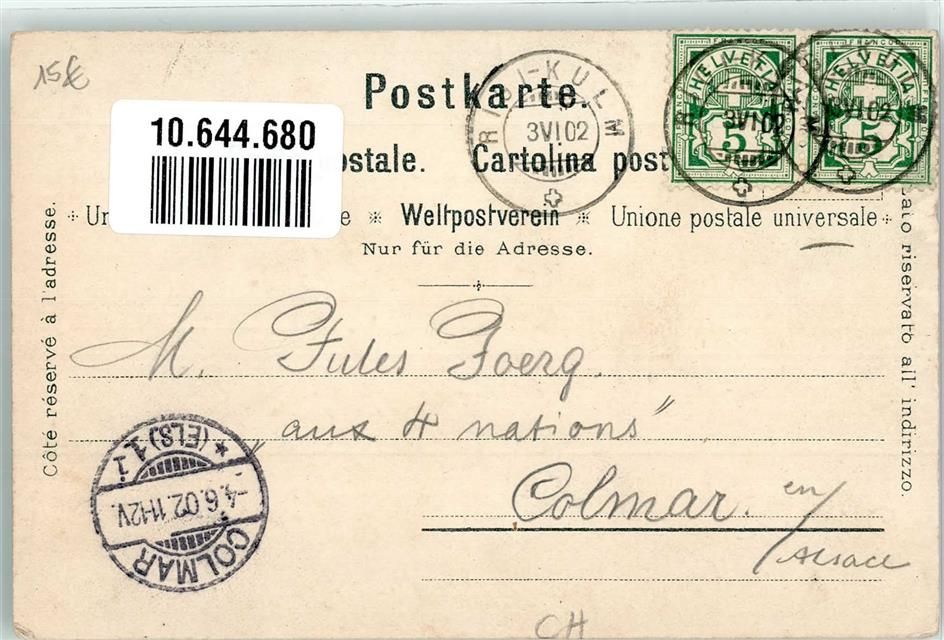 15€
Postkarte.
10.644.680
ostale. Cartolina post
Un e * Weltpostverein * Unione postale universale
Nur für die Adresse.
Côté réservé à l'adresse.
ato riservato all' indirizzo.
RIGI-KULM
3 VI 02
FRANCO
HELVETIA
5
RIGI-KULM
3 VI 02
FRANCO
HELVETIA
5
VI 02
M. Jules Joerg.
"aux 4 nations"
Colmar. en/
Alsace
COLMAR
-4.6.02.11-12V.
* (ELS) 1. 1
CH